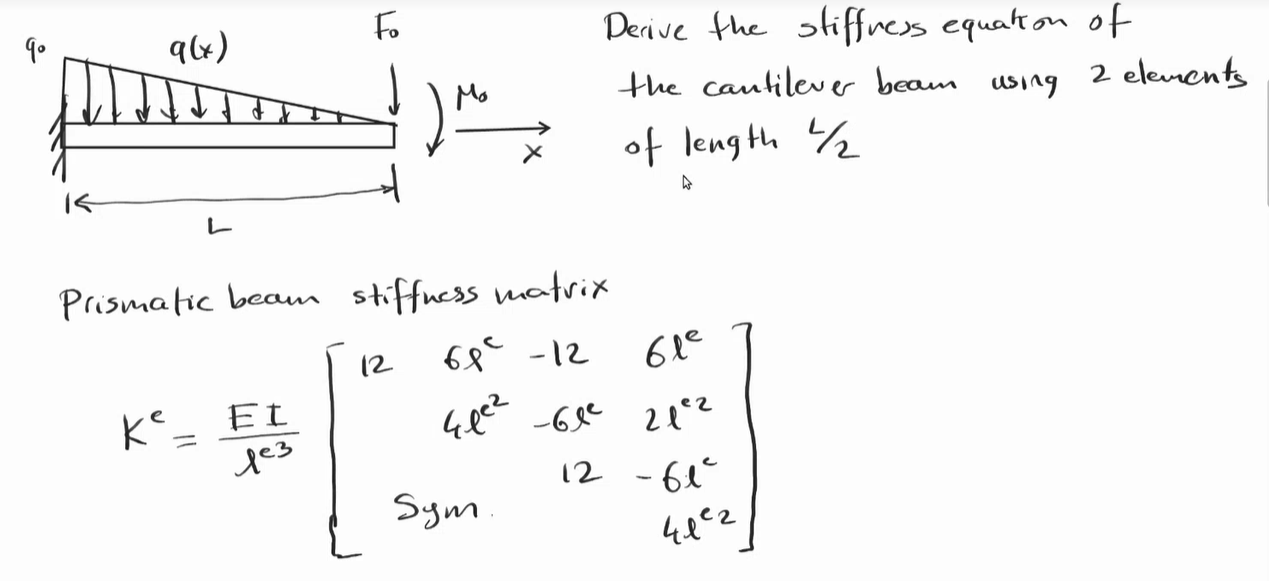 q₀ q(x) F₀
M₀
x
L
Derive the stiffness equation of
the cantilever beam using 2 elements
of length L/2
Prismatic beam stiffness matrix
Kᵉ = EI/lᵉ³ [ 12 6lᵉ -12 6lᵉ
4lᵉ² -6lᵉ 2lᵉ²
12 -6lᵉ
Sym. 4lᵉ² ]